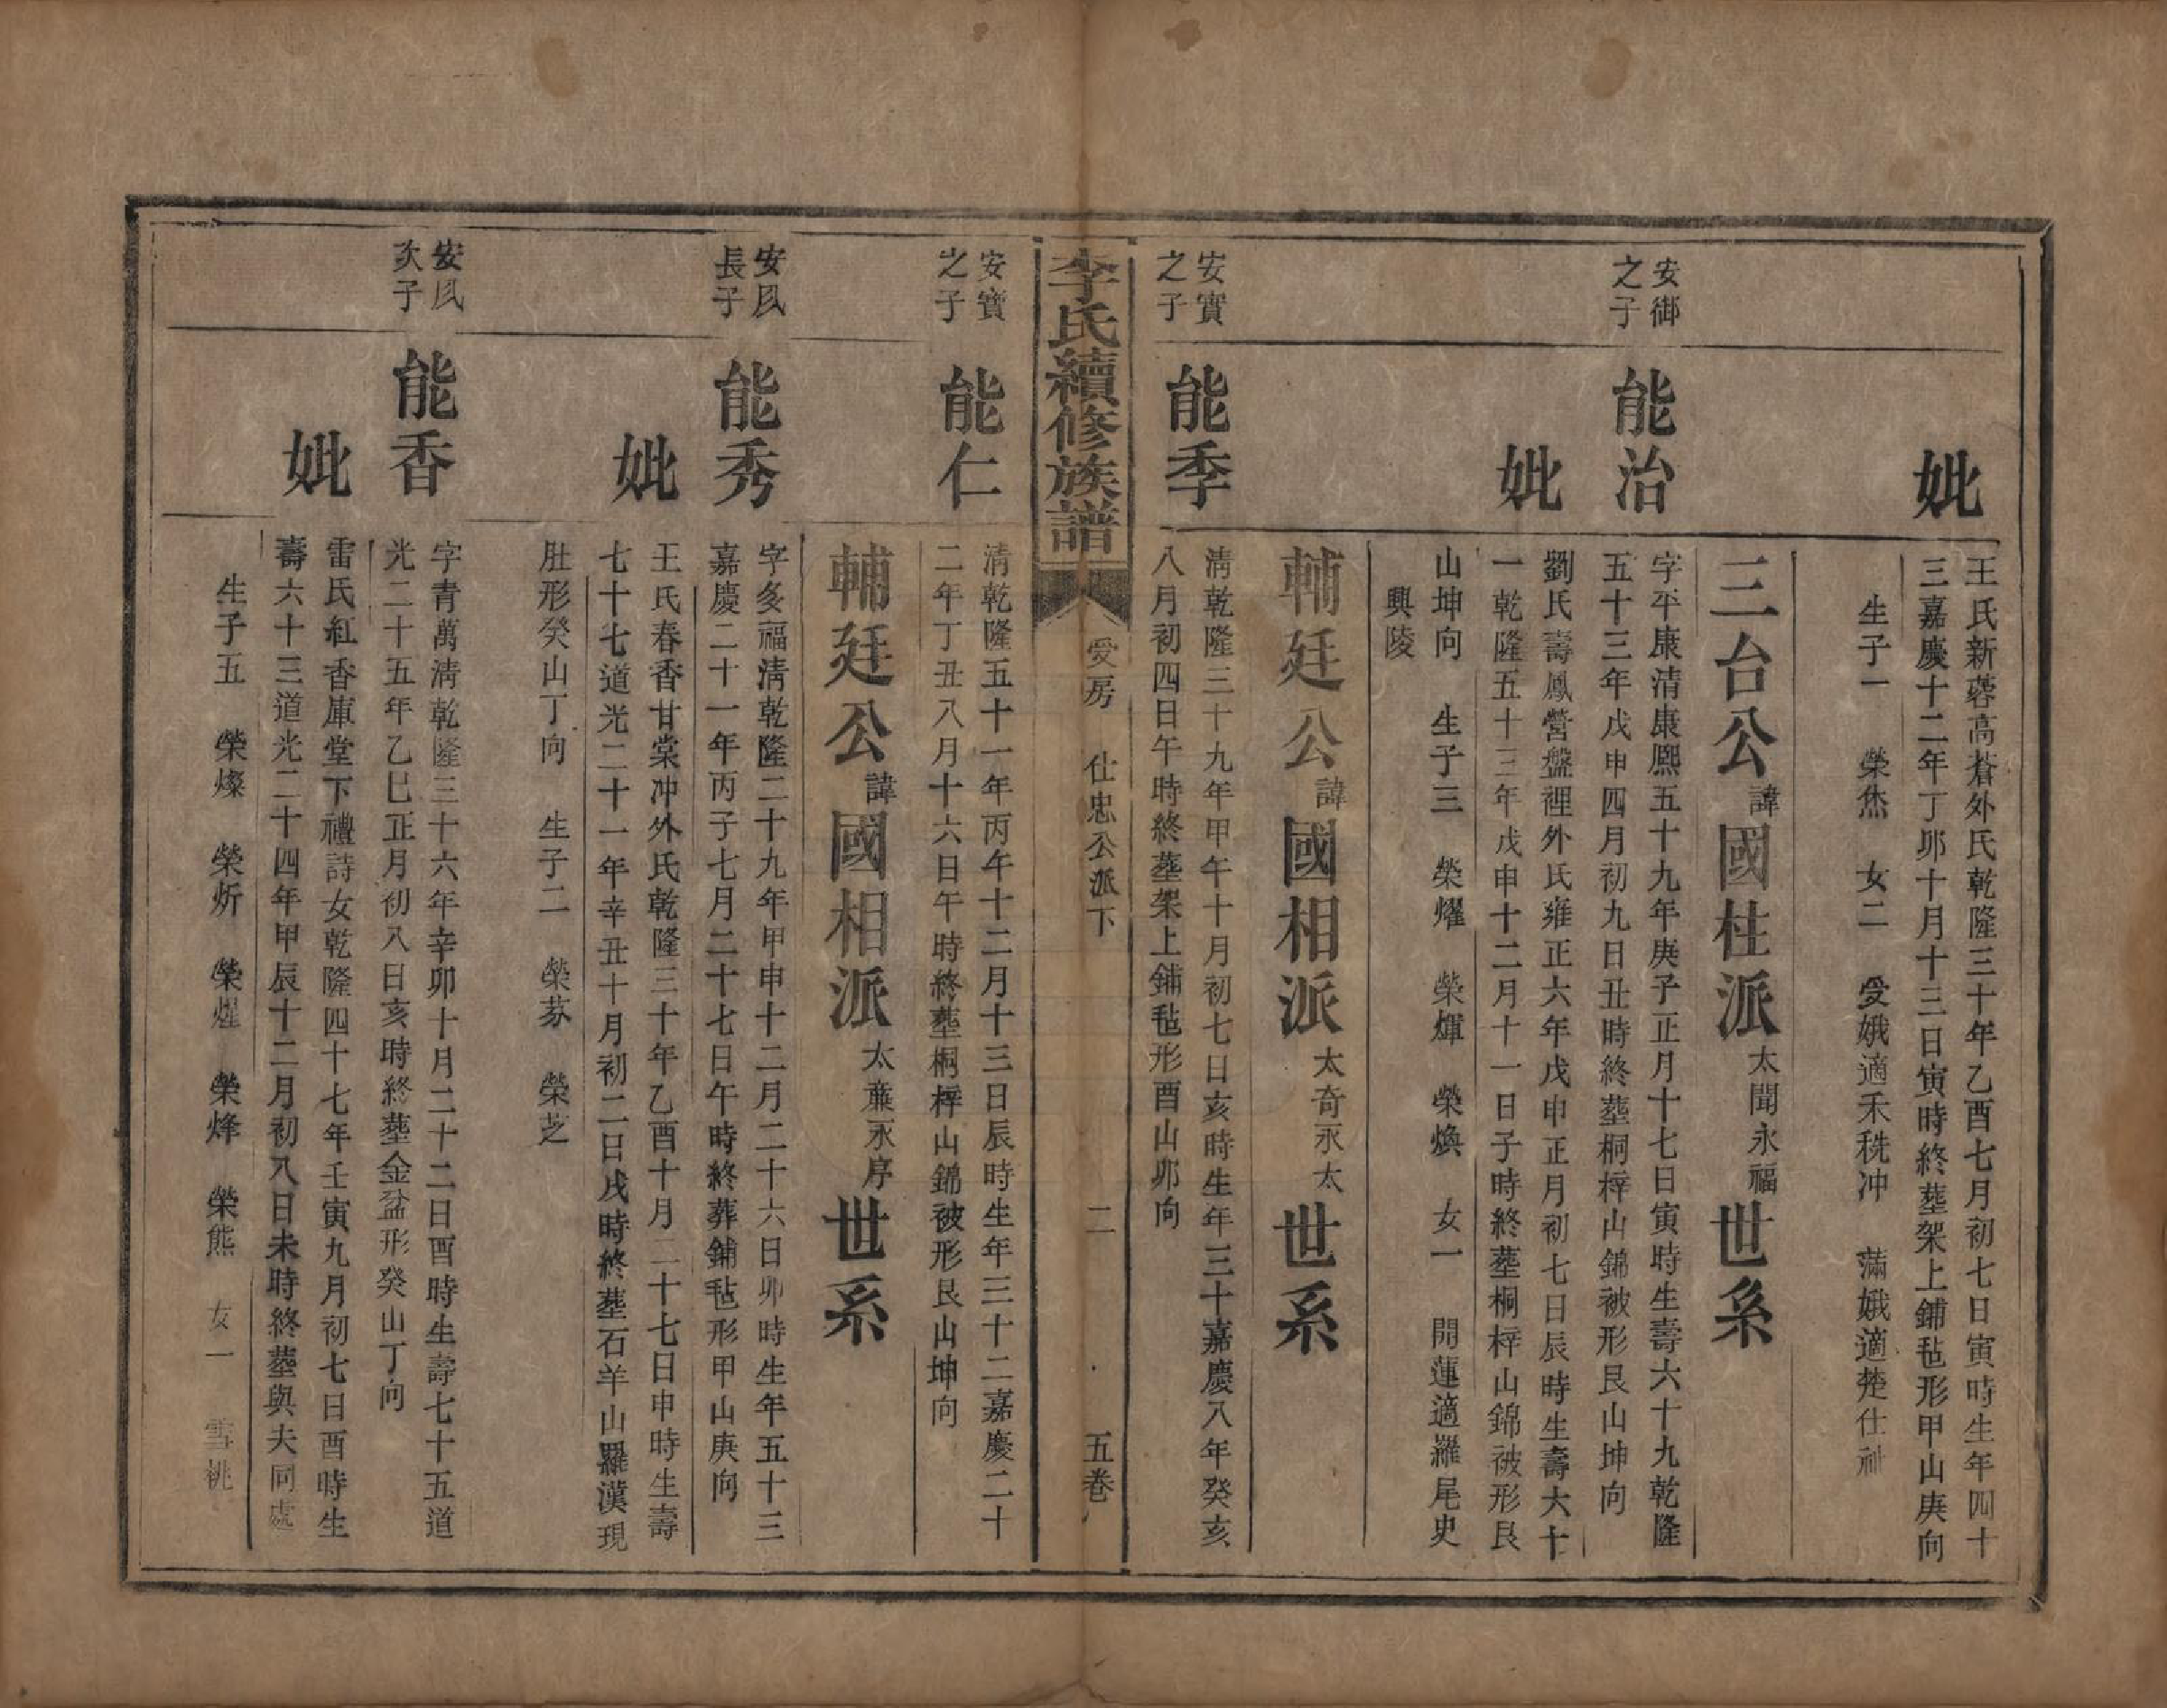 妣
王氏新蓉高蒼外氏乾隆三十年乙酉七月初七日寅時生年四十
三嘉慶十二年丁卯十月十三日寅時終塟架上鋪毡形甲山庚向
生子一 榮烋 女二 受娥適禾秈冲 滿娥適楚仕
三台公諱國柱派太聞永福世系
安御
之子
能治
字平康清康熈五十九年庚子正月十七日寅時生壽六十九乾隆
五十三年戊申四月初九日丑時終塟桐梓山錦被形艮山坤向
妣
劉氏壽鳳營盤裡外氏雍正六年戊申正月初七日辰時生壽六十
一乾隆五十三年戊申十二月十一日子時終塟桐梓山錦被形艮
山坤向 生子三 榮燿 榮煇 榮煥 女一 開蓮適羅尾史
興陵
輔廷公諱國相派太奇永太世系
安實
之子
能季
清乾隆三十九年甲午十月初七日亥時生年三十嘉慶八年癸亥
八月初四日午時終塟架上鋪毡形酉山卯向
李氏續修族譜
受房 仕忠公派下 二 五卷
安實
之子
能仁
清乾隆五十一年丙午十二月十三日辰時生年三十二嘉慶二十
二年丁丑八月十六日午時終塟桐梓山錦被形艮山坤向
輔廷公諱國相派太薕永序世系
安凨
長子
能秀
字多福清乾隆二十九年甲申十二月二十六日卯時生年五十三
嘉慶二十一年丙子七月二十七日午時終葬鋪毡形甲山庚向
妣
王氏春香甘棠冲外氏乾隆三十年乙酉十月二十七日申時生壽
七十七道光二十一年辛丑十月初二日戌時終塟石羊山羅漢現
肚形癸山丁向 生子二 榮芬 榮芝
安凨
次子
能香
字青萬清乾隆三十六年辛卯十月二十二日酉時生壽七十五道
光二十五年乙巳正月初八日亥時終塟金盆形癸山丁向
妣
雷氏紅香庫堂下禮詩女乾隆四十七年壬寅九月初七日酉時生
壽六十三道光二十四年甲辰十二月初八日未時終塟與夫同處
生子五 榮燦 榮炘 榮煋 榮烽 榮熊 女一 雪桃